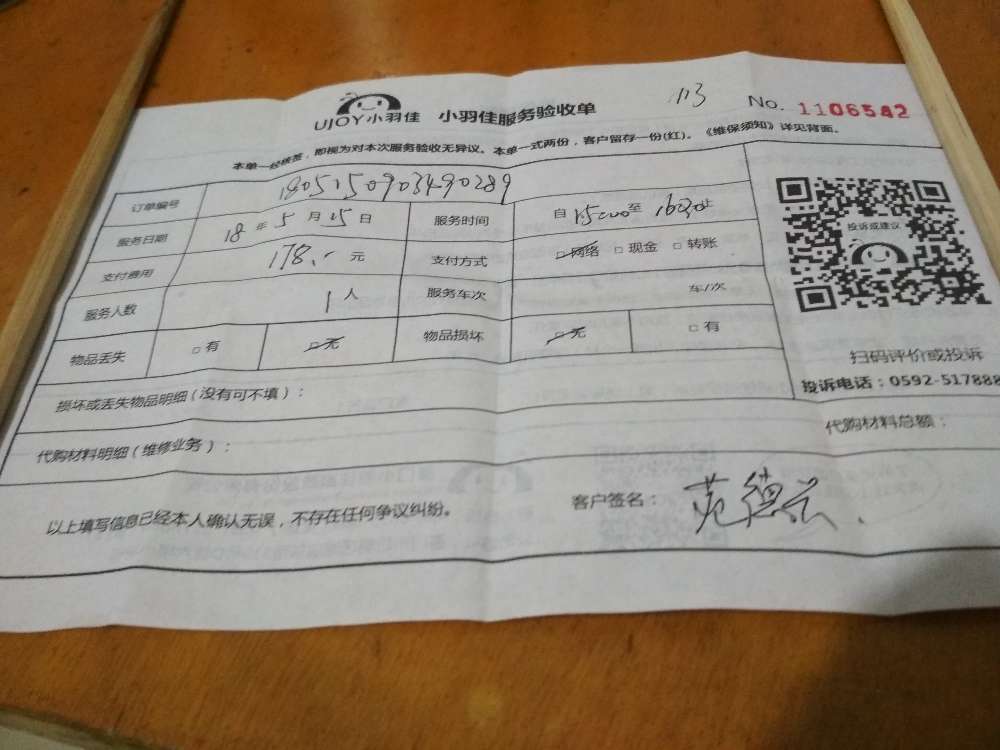 UJOY小羽佳 小羽佳服务验收单 113 No. 1106542
本单一经核签，即视为对本次服务验收无异议。本单一式两份，客户留存一份(红)。《维保须知》详见背面。
订单编号 1805150903490289
服务日期 18 年 5 月 15 日 服务时间 自 15:00 至 16:30 止
支付费用 178.- 元 支付方式 □网络 □现金 □转账
服务人数 1 人 服务车次 车/次
物品丢失 □有 □无 物品损坏 □无 □有
投诉或建议
扫码评价或投诉
投诉电话：0592-517888
损坏或丢失物品明细（没有可不填）：
代购材料明细（维修业务）： 代购材料总额：
以上填写信息已经本人确认无误，不存在任何争议纠纷。 客户签名：范德云